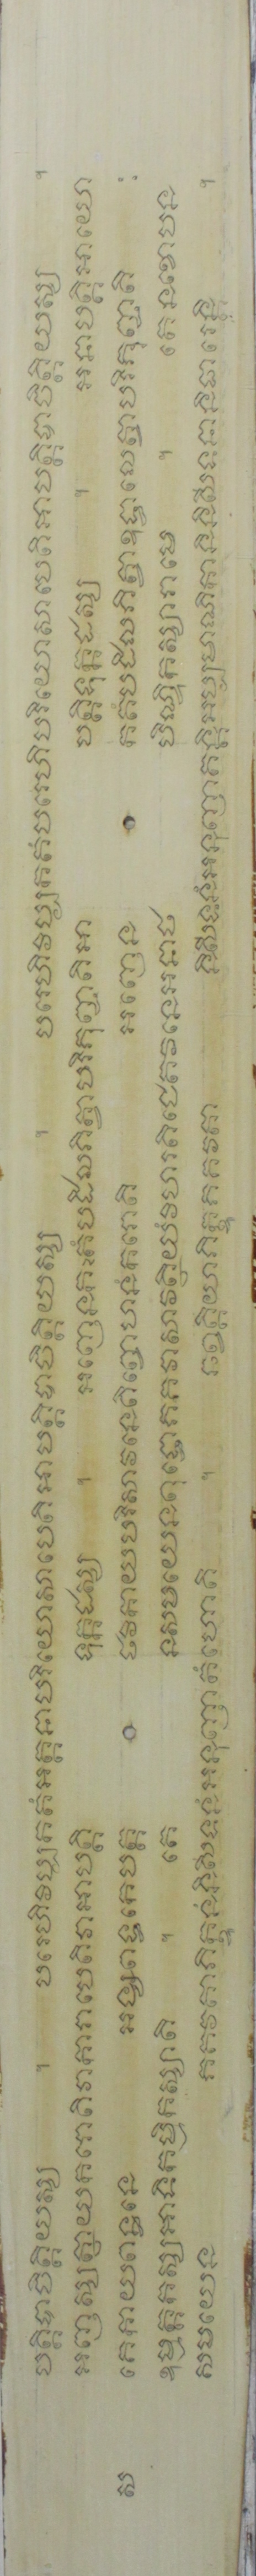 បត្តិបាចិត្តិយស្ស ។ បរេហិវិប្បកតំអត្តនាបរិយោសាបេតិអាបត្តិបាចិត្តិយស្ស ។ បរេហិវិប្បកតំបរេហិបរិយោសាបេតិអាបត្តិបាចិត្តិយស្ស ។
អញ្ញស្សត្ថាយករោតិវាការាបេតិវាអាបត្តិ ទុក្កដស្ស ។ អញ្ញេនកតំបដិលភិត្វាបរិភុញ្ជតិអា បត្តិទុក្កដស្ស ។ អនាបត្តិអាយោ
ស គេកាយពន្ធនេ អង្សពទ្ធកេបត្ត ០ ថវិកាយបរិសាវនេពិព្ពោហនំករោតិ អញ្ញេន ០ កតំបដិលភិត្វាឧទ្ទាលេត្វាបរិភុញ្ជតិ :
ឧម្មត្តកស្សអាទិកម្មិកស្សាតិ ។ តេ នសមយេនពុទ្ធោភគវាសាវត្ថិយំវិហរតិជេតវនេអនាថ បិណ្ឌិកស្សារាមេ ។ តេនខោបន
សមយេន ភគវតាភិក្ខូនំនិសីទនំអនុញ្ញាតំហោតិ ។ ឆព្វគ្គិយាភិក្ខូភគវតា និសីទនំអនុញ្ញាតន្តិអប្បមាណិកានិនិសីទនានិធារេន្តិ ។